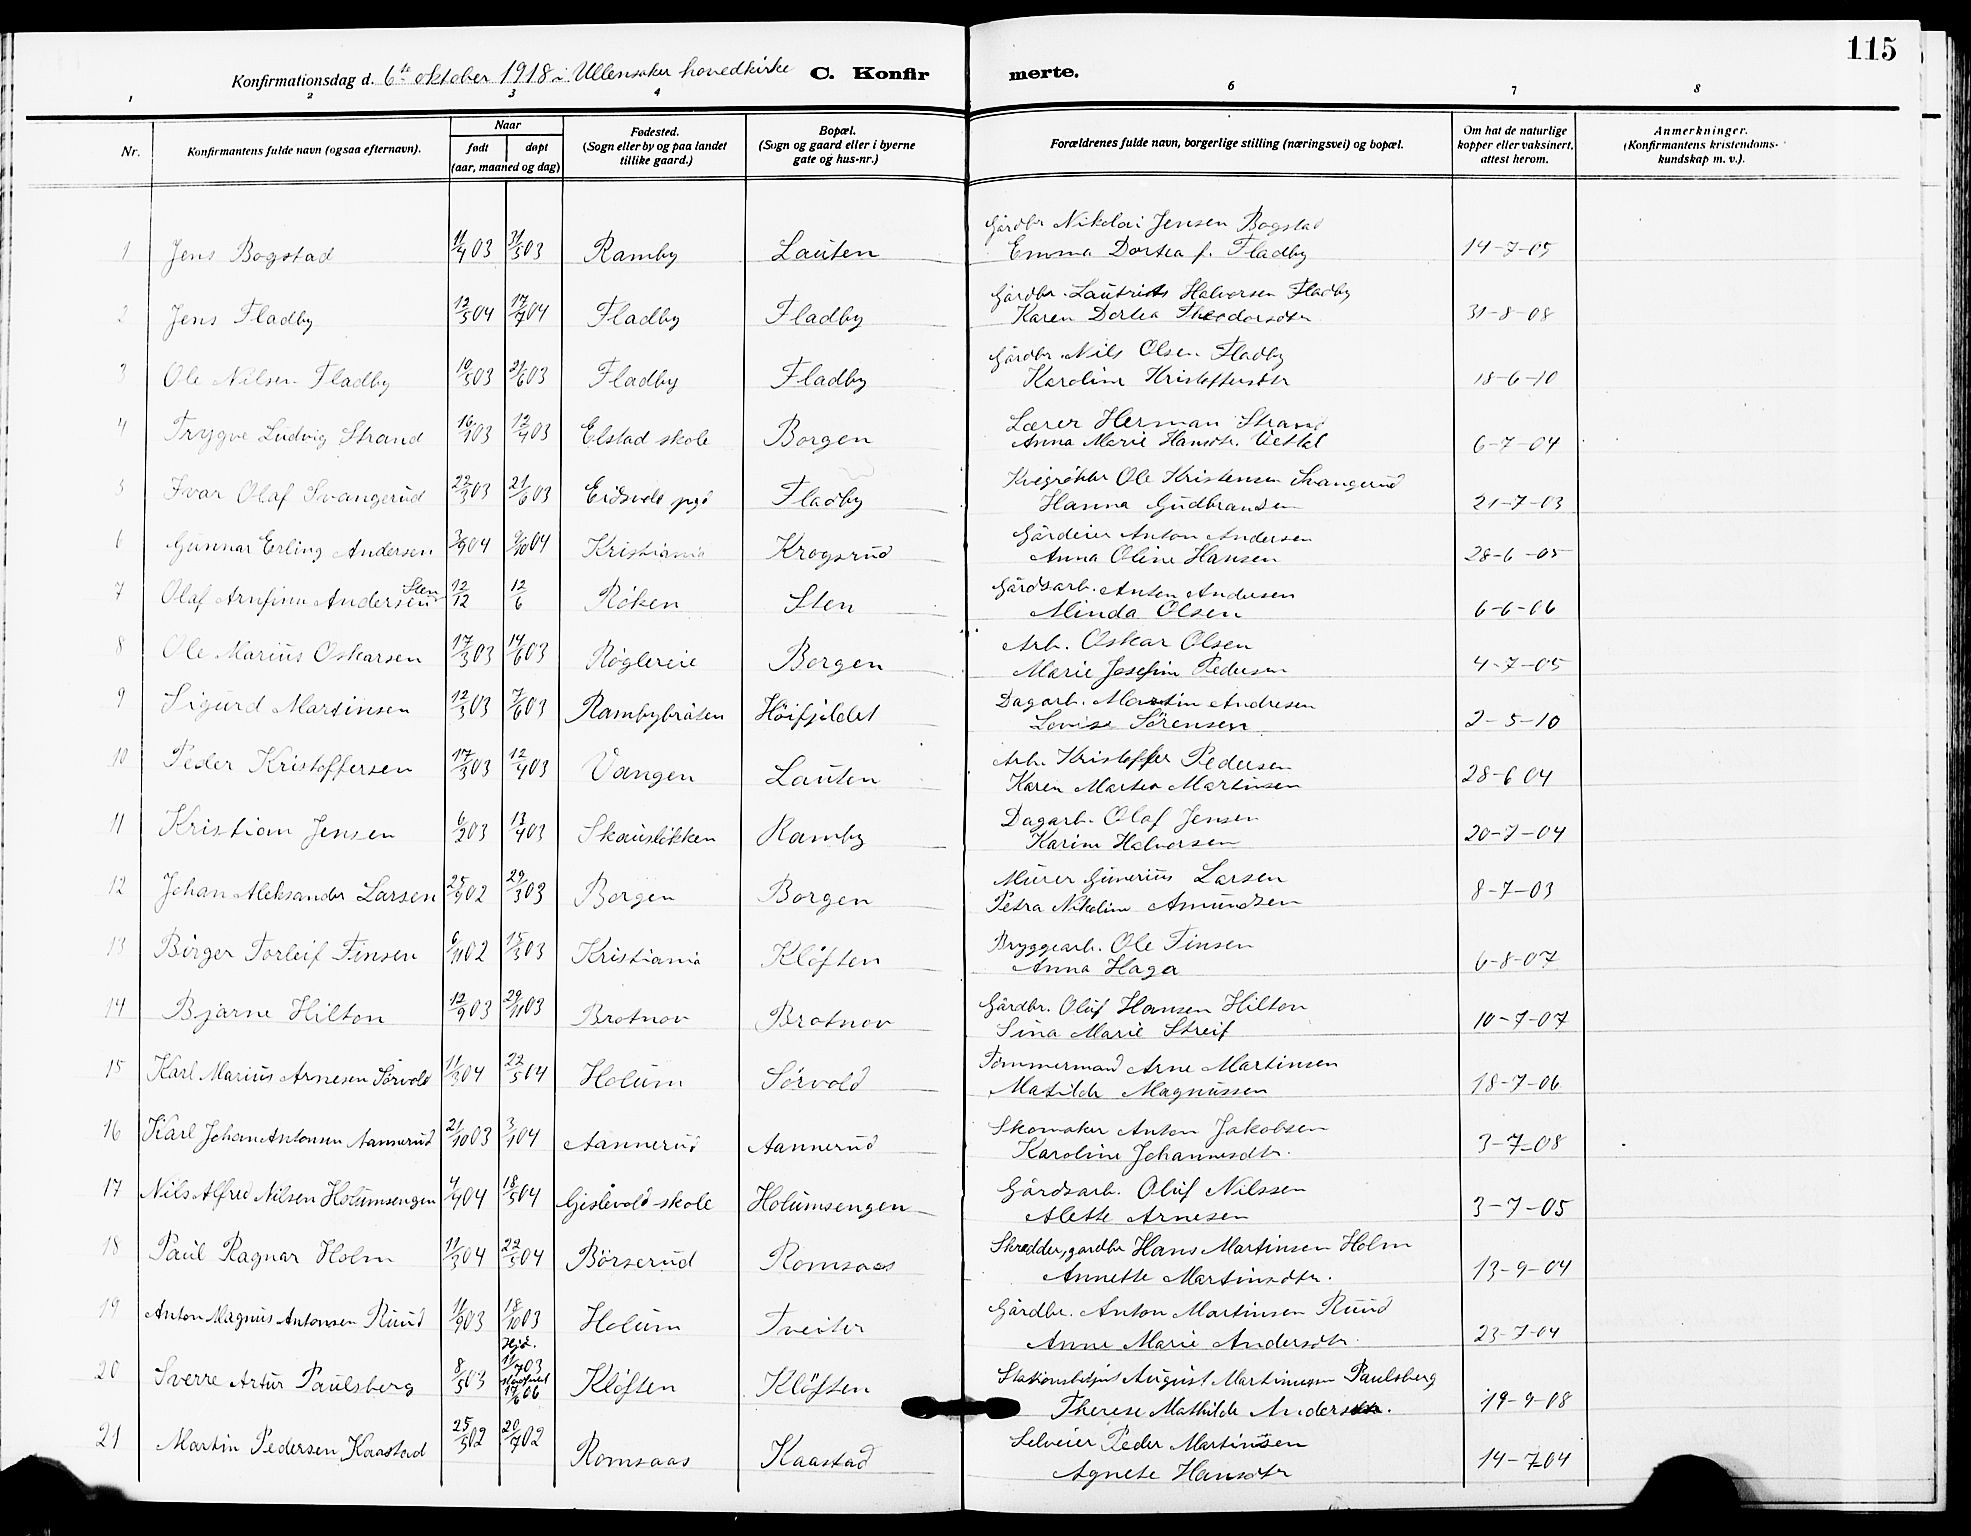 115
Konfirmationsdag d. 6te oktober 1918 i Ullensaker hovedkirke C. Konfirmerte.
1 2 3 4 6 7 8
Nr. Konfirmantens fulde navn (ogsaa efternavn). Naar født døpt (aar, maaned og dag) Fødested. (Sogn eller by og paa landet tillike gaard.) Bopæl. (Sogn og gaard eller i byerne gate og hus-nr.) Forældrenes fulde navn, borgerlige stilling (næringsvei) og bopæl. Om hat de naturlige kopper eller vaksinert, attest herom. Anmerkninger. (Konfirmantens kristendomskundskap m. v.).
Gårdbr Nikolai Jensen Bogstad
1 Jens Bogstad 11/4 03 31/5 03 Ramby Lauten Emma Dortea f. Fladby 14-7-05
Gårdbr. Lauritds Halvorsen Fladby
2 Jens Fladby 12/5 04 17/7 04 Fladby Fladby Karen Dortea Theodorsdtr 31-8-08
Gårdbr. Nils Olsen Fladby
3 Ole Nilsen Fladby 10/5 03 21/6 03 Fladby Fladby Karoline Kristoffersdtr 18-6-10
Lærer Herman Strand
4 Trygve Ludvig Strand 16/1 03 12/4 03 Elstad skole Borgen Anna Marie Hansdtr. 6-7-04
Kvegrøkter Ole Kristensen Svangerud
5 Ivar Olaf Svangerud 22/3 03 21/6 03 Eidsvold pgd Fladby Hanna Gudbrandsen 21-7-03
Gårdeier Anton Andersen
6 Gunnar Erling Andersen 3/9 04 9/10 04 Kristiania Krogsrud Anna Oline Hansen 28-6-05
Gårdsarb. Anton Andersen
7 Olaf Arnfinn Andersen Sten 12/12 12/6 Røken Sten Minda Olsen 6-6-06
Arb. Oskar Olsen
8 Ole Marius Oskarsen 17/3 03 14/6 03 Røglereie Borgen Marie Josefine Pedersen 4-7-05
Dagarb. Martin Andresen
9 Sigurd Martinsen 12/3 03 7/6 03 Rambybråten Höifjeldet Lovise Sörensen 2-5-10
Arb. Kristoffer Pedersen
10 Peder Kristoffersen 17/3 03 12/4 03 Vangen Lauten Karen Martea Martinsen 28-6 04
Dagarb. Olaf Jensen
11 Kristian Jensen 6/2 03 13/4 03 Skauslökken Ramby Karine Halvorsen 20-7-04
Murer Gunerius Larsen
12 Johan Aleksander Larsen 25/9 02 29/3 03 Borgen Borgen Petra Nikoline Amundsen 8-7-03
Bryggearb. Ole Finsen
13 Birger Torleif Finsen 6/11 02 15/3 03 Kristiania Klöften Anna Haga 6-8-07
Gårdbr. Oluf Hansen Hilton
14 Bjarne Hilton 12/9 03 29/11 03 Brotnov Brotnov Sina Marie Streif 10-7-07
Tømmermand Arne Martinsen
15 Karl Marius Arnesen Sørvold 11/3 04 22/5 04 Holum Sørvold Matilde Magnussen 18-7-06
Skomaker Anton Jakobsen
16 Karl Johan Antonsen Aannerud 21/10 03 3/1 04 Aannerud Aannerud Karoline Johannesdtr. 3-7-08
Gårdsarb. Oluf Nilssen
17 Nils Alfred Nilsen Holumsengen 4/4 04 18/5 04 Gislevold skole Holumsengen Alette Arnesen 3-7-05
Skredder, gardbr Hans Martinsen Holm
18 Paul Ragnar Holm 11/3 04 22/5 04 Börserud Romsaas Annette Martinsdtr. 13-9-04
Gårdbr. Anton Martinsen Ruud
19 Anton Magnus Antonsen Ruud 11/9 03 18/10 03 Holum Tveiter Anne Marie Andersdtr. 23-7-04
Stationsbetjent August Martinusen Paulsberg
20 Sverre Artur Paulsberg 8/5 03 Hjd. 11/7 03 17/6 06 Klöften Klöften Therese Mathilde Andersdtr. 19-9-08
Selveier Peder Martinsen
21 Martin Pedersen Kaastad 25/5 02 20/7 02 Romsaas Kaastad Agnete Hansdtr 14-7-04